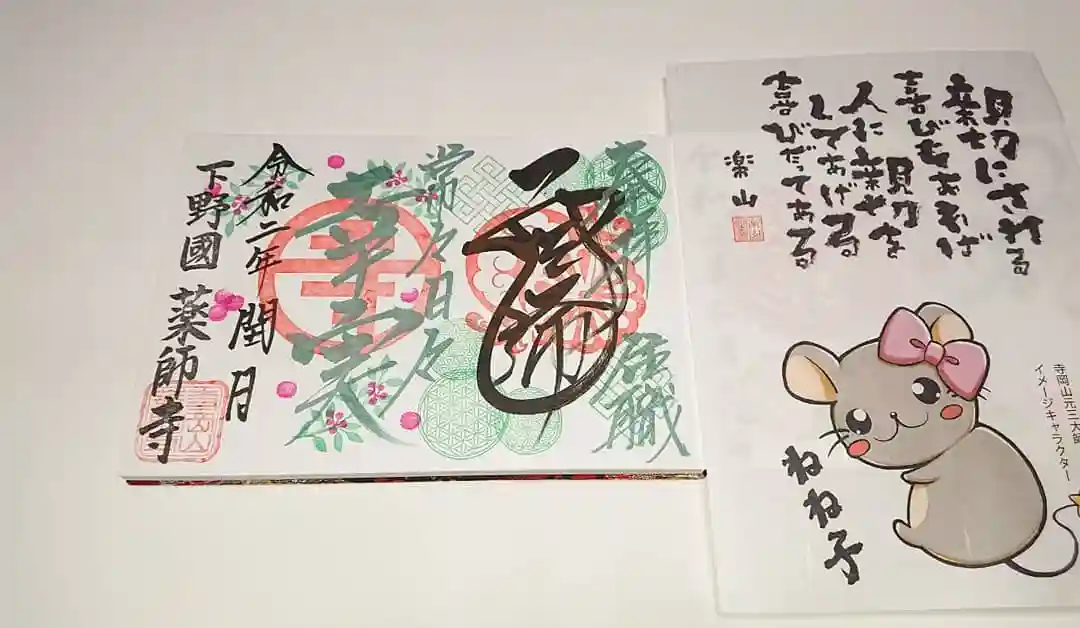 親切にされる
喜びもあれば
人に親切を
してあげる
喜びだってある
楽山
寺岡山元三大師
イメージキャラクター
ねね子
奉拝 住職
常々日々
令和二年 閏日
下野國 薬師寺